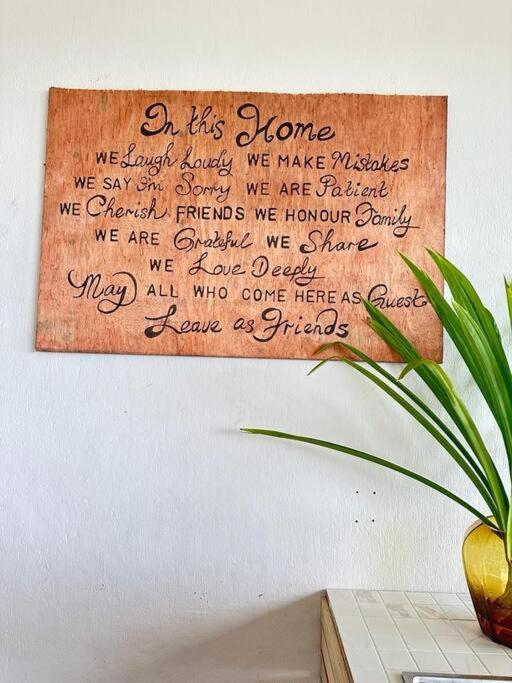 In this Home
WE Laugh Loudy WE MAKE Mistakes
WE SAY I'm Sorry WE ARE Patient
WE Cherish FRIENDS WE HONOUR Family
WE ARE Grateful WE Share
WE Love Deeply
May ALL WHO COME HERE AS Guest
Leave as Friends